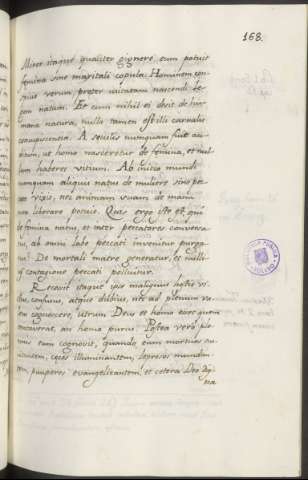 168.
Miror itaque qualiter gignere eum potuit
femina sine maritali copula. Hominem con-
verum, preter usitatam nascendi le-
gem natum. Et cum nihil ei desit de hu-
mana natura, nulla tamen est illi carnalis
concupiscentia. A seculis nunquam fuit au-
ditum, ut homo nasceretur de femina, et nul-
lum haberet vitium. Ab initio mundi
nunquam aliquis natus de muliere sine pec-
cato vixit, nec animam suam de manu
liberare potuit. Quis ergo iste est, qui
de femina natus, et inter peccatores conversa-
tus, ab omni labe peccati invenitur purga-
tus? De mortali matre generatur, et nulla
contagione peccati polluitur.
Recessit itaque ipse malignus hostis vic-
tus, confusus, atque dubius, nec ad plenum va-
len cognoscere, utrum Deus et homo esset quem
tentaverat, an homo purus. Postea vero ple-
nius eum cognovit, quando eum mortuos su-
scitantem, cecos illuminantem, leprosos mundan-
tem, pauperes evangelizantem, et cetera Deo dig-
na